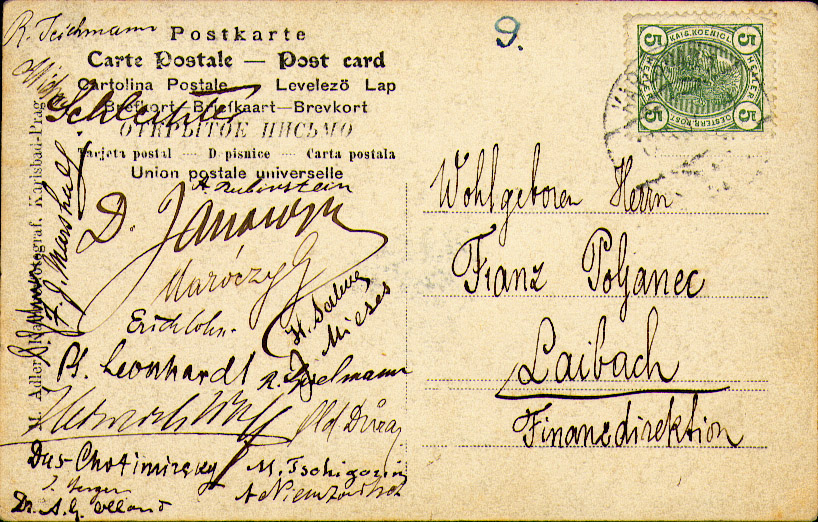 R. Teichmann
Postkarte
9.
Carte Postale — Post card
Cartolina Postale Levelező Lap
Brefkort—Briefkaart—Brevkort
Schlechter
ОТКРЫТОЕ ПИСЬМО
Tarjeta postal — Dopisnice — Carta postala
Union postale universelle
A. Rubinstein
D. Janowsky
F. J. Marshall
Maróczy G
Erich Cohn.
J. Mieses
P. S. Leonhardt
R. Spielmann
Old. Duras
Dus-Chotimirsky
M. Tschigorin
J. Berger
A Niemzowitsch
Dr. A. G. Olland
M. Adler, Kunstfotograf, Karlsbad-Prag.
5 KAIS. KOENIGL. 5
HELLER HELLER
5 OESTERR. POST 5
Wohlgeboren Herrn
Franz Poljanec
Laibach
Finanzdirektion